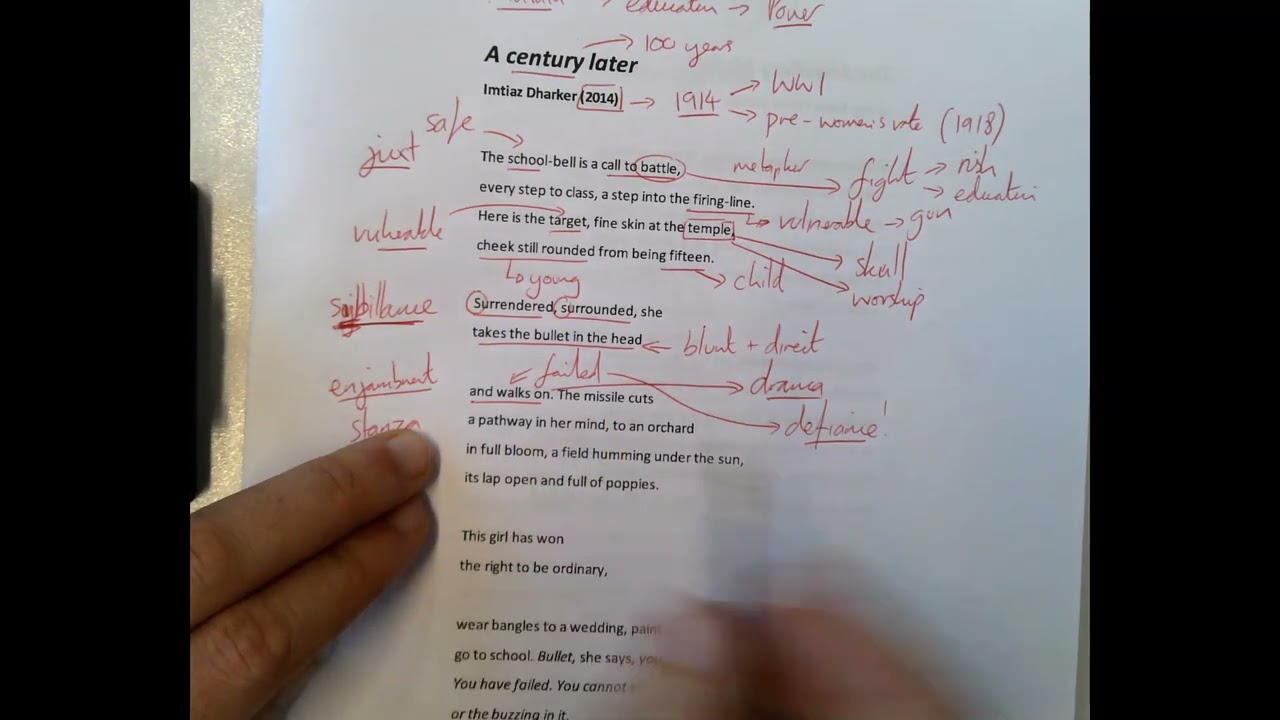 → education → Power
→ 100 years
A century later
Imtiaz Dharker (2014) → 1914 → WW1
→ pre-women's vote (1918)
safe
just
The school-bell is a call to battle, metaphor fight → risk
→ education
every step to class, a step into the firing-line.
vulnerable → gun
Here is the target, fine skin at the temple,
vulnerable
skull
cheek still rounded from being fifteen.
child
worship
young
Surrendered, surrounded, she
takes the bullet in the head ← blunt + direct
failed
drama
enjambment
and walks on. The missile cuts
stanza
a pathway in her mind, to an orchard
defiance!
in full bloom, a field humming under the sun,
its lap open and full of poppies.
This girl has won
the right to be ordinary,
wear bangles to a wedding, paint
go to school. Bullet, she says, you
You have failed. You cannot
or the buzzing in it.